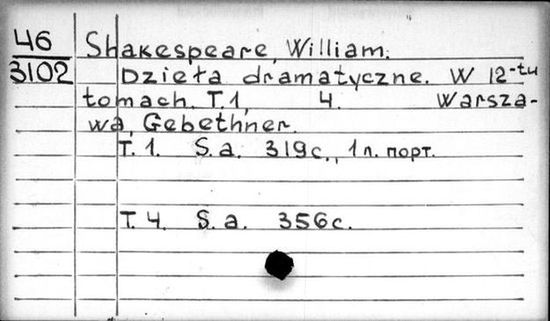 46 Shakespeare, William.
3102 Dzieła dramatyczne. W 12-tu
tomach. T. 1, 4. Warsza-
wa, Gebethner.
T. 1. S. a. 319c., 1 л. порт.
T. 4. S. a. 356c.